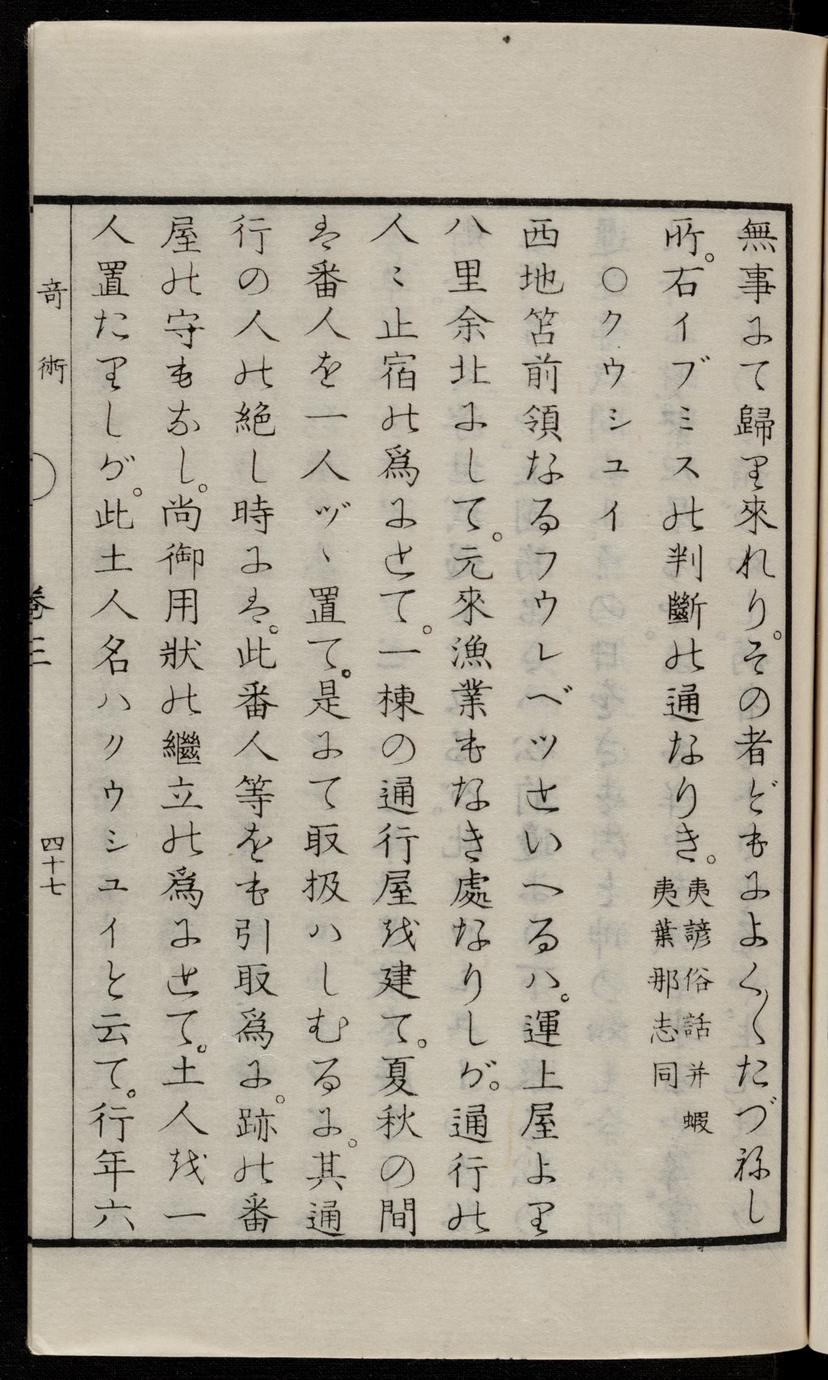 無事にて歸り來れり。その者どもによく〱たづねし
所。右イブミスの判斷の通なりき。夷諺俗話并蝦
夷葉那志同
〇クウシユイ
西地笘前領なるフウレベツといへるハ。運上屋より
八里余北にして。元來漁業もなき處なりしが。通行の
人〻止宿の爲にとて。一棟の通行屋を建て。夏秋の間
は番人を一人ヅヽ置て。是にて取扱ハしむるに。其通
行の人の絶し時には。此番人等をも引取爲に。跡の番
屋の守もなし。尚御用狀の繼立の爲にとて。土人を一
人置たりしが。此土人名ハクウシユイと云て。行年六
竒術
卷三
四十七